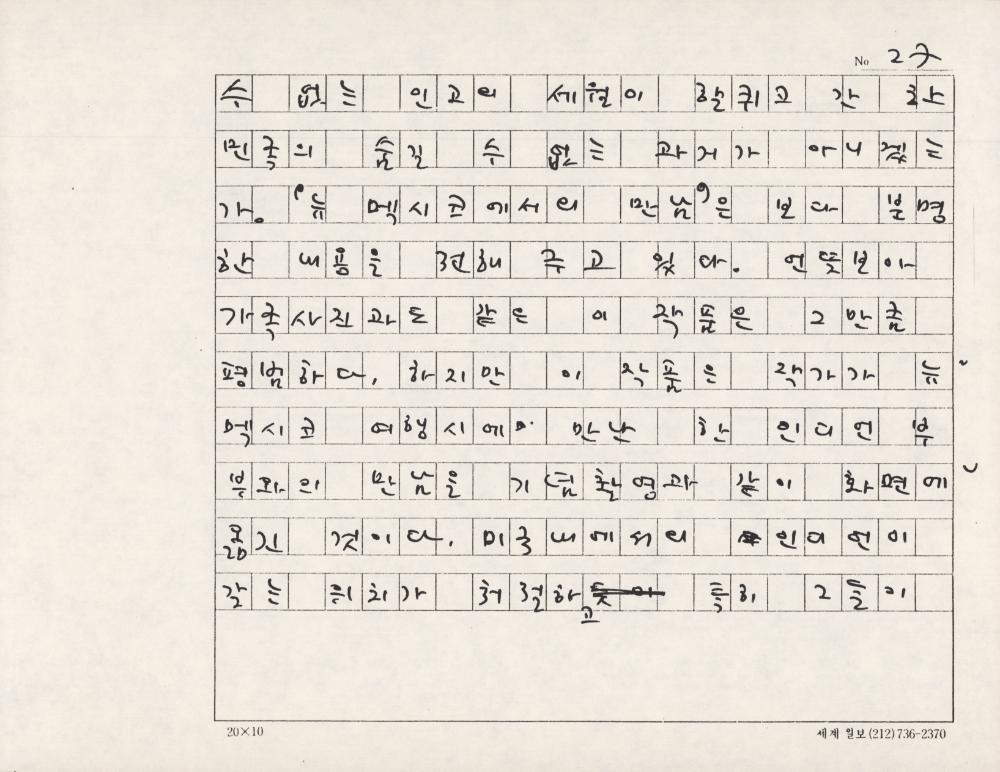 No 27
수 없는 인고의 세월이 할퀴고 간 한
민국의 숨길 수 없는 과거가 아니겠는
가. '뉴 멕시코에서의 만남'은 보다 분명
한 내용을 전해 주고 있다. 언뜻보아
가족사진과도 같은 이 작품은 그만큼
평범하다. 하지만 이 작품은 작가가 뉴
멕시코 여행시에 만난 한 인디언 부
부와의 만남을 기념촬영과 같이 화면에
옮긴 것이다. 미국내에서의 인디언이
갖는 위치가 처절하고 특히 그들이
20×10
세계 월보 (212) 736-2370